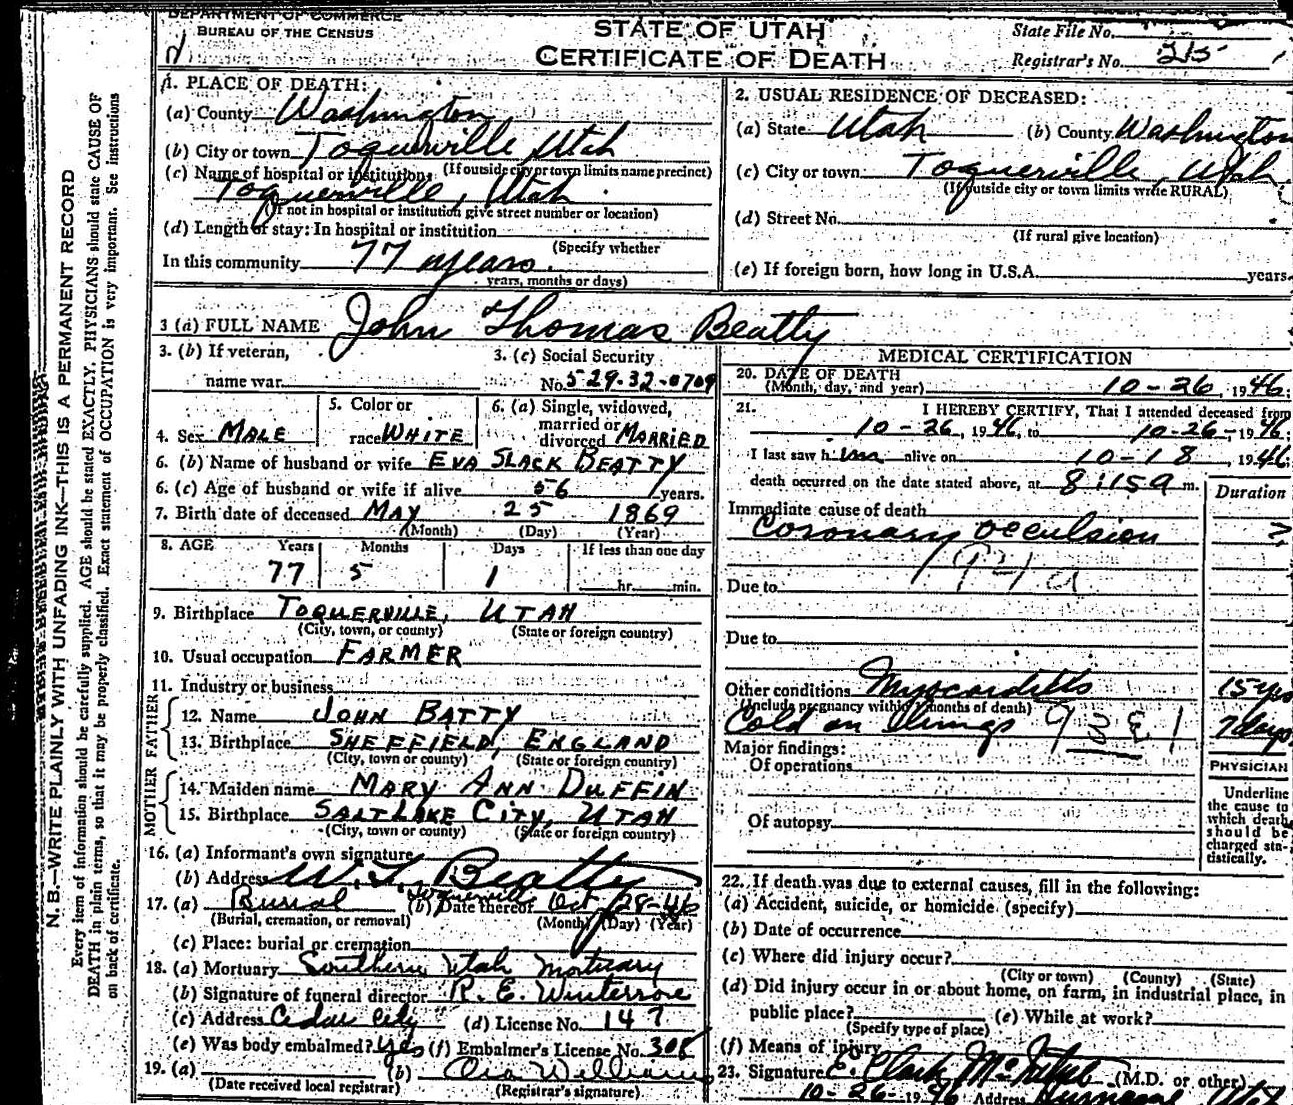 DEPARTMENT OF COMMERCE
BUREAU OF THE CENSUS
STATE OF UTAH
CERTIFICATE OF DEATH
State File No.
Registrar's No. 215
N. B.—WRITE PLAINLY WITH UNFADING INK—THIS IS A PERMANENT RECORD
Every item of information should be carefully supplied. AGE should be stated EXACTLY. PHYSICIANS should state CAUSE OF
DEATH in plain terms, so that it may be properly classified. Exact statement of OCCUPATION is very important. See instructions
on back of certificate.
1. PLACE OF DEATH:
(a) County Washington
(b) City or town Toquerville Utah
(If outside city or town limits name precinct)
(c) Name of hospital or institution:
Toquerville, Utah
(If not in hospital or institution give street number or location)
(d) Length of stay: In hospital or institution
(Specify whether
In this community 77 years.
years, months or days)
2. USUAL RESIDENCE OF DECEASED:
(a) State Utah (b) County Washington
(c) City or town Toquerville, Utah.
(If outside city or town limits write RURAL)
(d) Street No.
(If rural give location)
(e) If foreign born, how long in U.S.A. years.
3 (a) FULL NAME John Thomas Beatty
3. (b) If veteran,
name war
3. (c) Social Security
No. 529-32-0709
4. Sex MALE
5. Color or
race WHITE
6. (a) Single, widowed,
married or
divorced MARRIED
6. (b) Name of husband or wife EVA SLACK BEATTY
6. (c) Age of husband or wife if alive 56 years.
7. Birth date of deceased MAY 25 1869
(Month) (Day) (Year)
8. AGE Years Months Days If less than one day
77 5 1 hr. min.
9. Birthplace TOQUERVILLE, UTAH
(City, town, or county) (State or foreign country)
10. Usual occupation FARMER
11. Industry or business
FATHER
12. Name JOHN BATTY
13. Birthplace SHEFFIELD, ENGLAND
(City, town or county) (State or foreign country)
MOTHER
14. Maiden name MARY ANN DUFFIN
15. Birthplace SALT LAKE CITY, UTAH
(City, town or county) (State or foreign country)
16. (a) Informant's own signature
W. L. Beatty
(b) Address Toquerville
17. (a) Burial (b) Date thereof Oct 28-46
(Burial, cremation, or removal) (Month) (Day) (Year)
(c) Place: burial or cremation
18. (a) Mortuary Southern Utah Mortuary
(b) Signature of funeral director R. E. Winterrose
(c) Address Cedar City (d) License No. 147
(e) Was body embalmed? Yes (f) Embalmer's License No. 308
19. (a) (b) Ora Williams
(Date received local registrar) (Registrar's signature)
MEDICAL CERTIFICATION
20. DATE OF DEATH
(Month, day, and year) 10-26, 1946.
21. I HEREBY CERTIFY, That I attended deceased from
10-26, 1946, to 10-26-, 1946.
I last saw him alive on 10-18, 1946.
death occurred on the date stated above, at 8:15 a m.
Duration
Immediate cause of death
Coronary occulsion ?
Due to
Due to
Other conditions Myocarditis 15 yrs
(Include pregnancy within 3 months of death)
Cold on lungs 7 days
Major findings:
Of operations
Of autopsy
PHYSICIAN
Underline
the cause to
which death
should be
charged sta-
tistically.
22. If death was due to external causes, fill in the following:
(a) Accident, suicide, or homicide. (specify)
(b) Date of occurrence
(c) Where did injury occur?
(City or town) (County) (State)
(d) Did injury occur in or about home, on farm, in industrial place, in
public place? (e) While at work?
(Specify type of place)
(f) Means of injury
23. Signature E. Clark McIntire (M.D. or other)
10-26-1946 Address Hurricane Utah